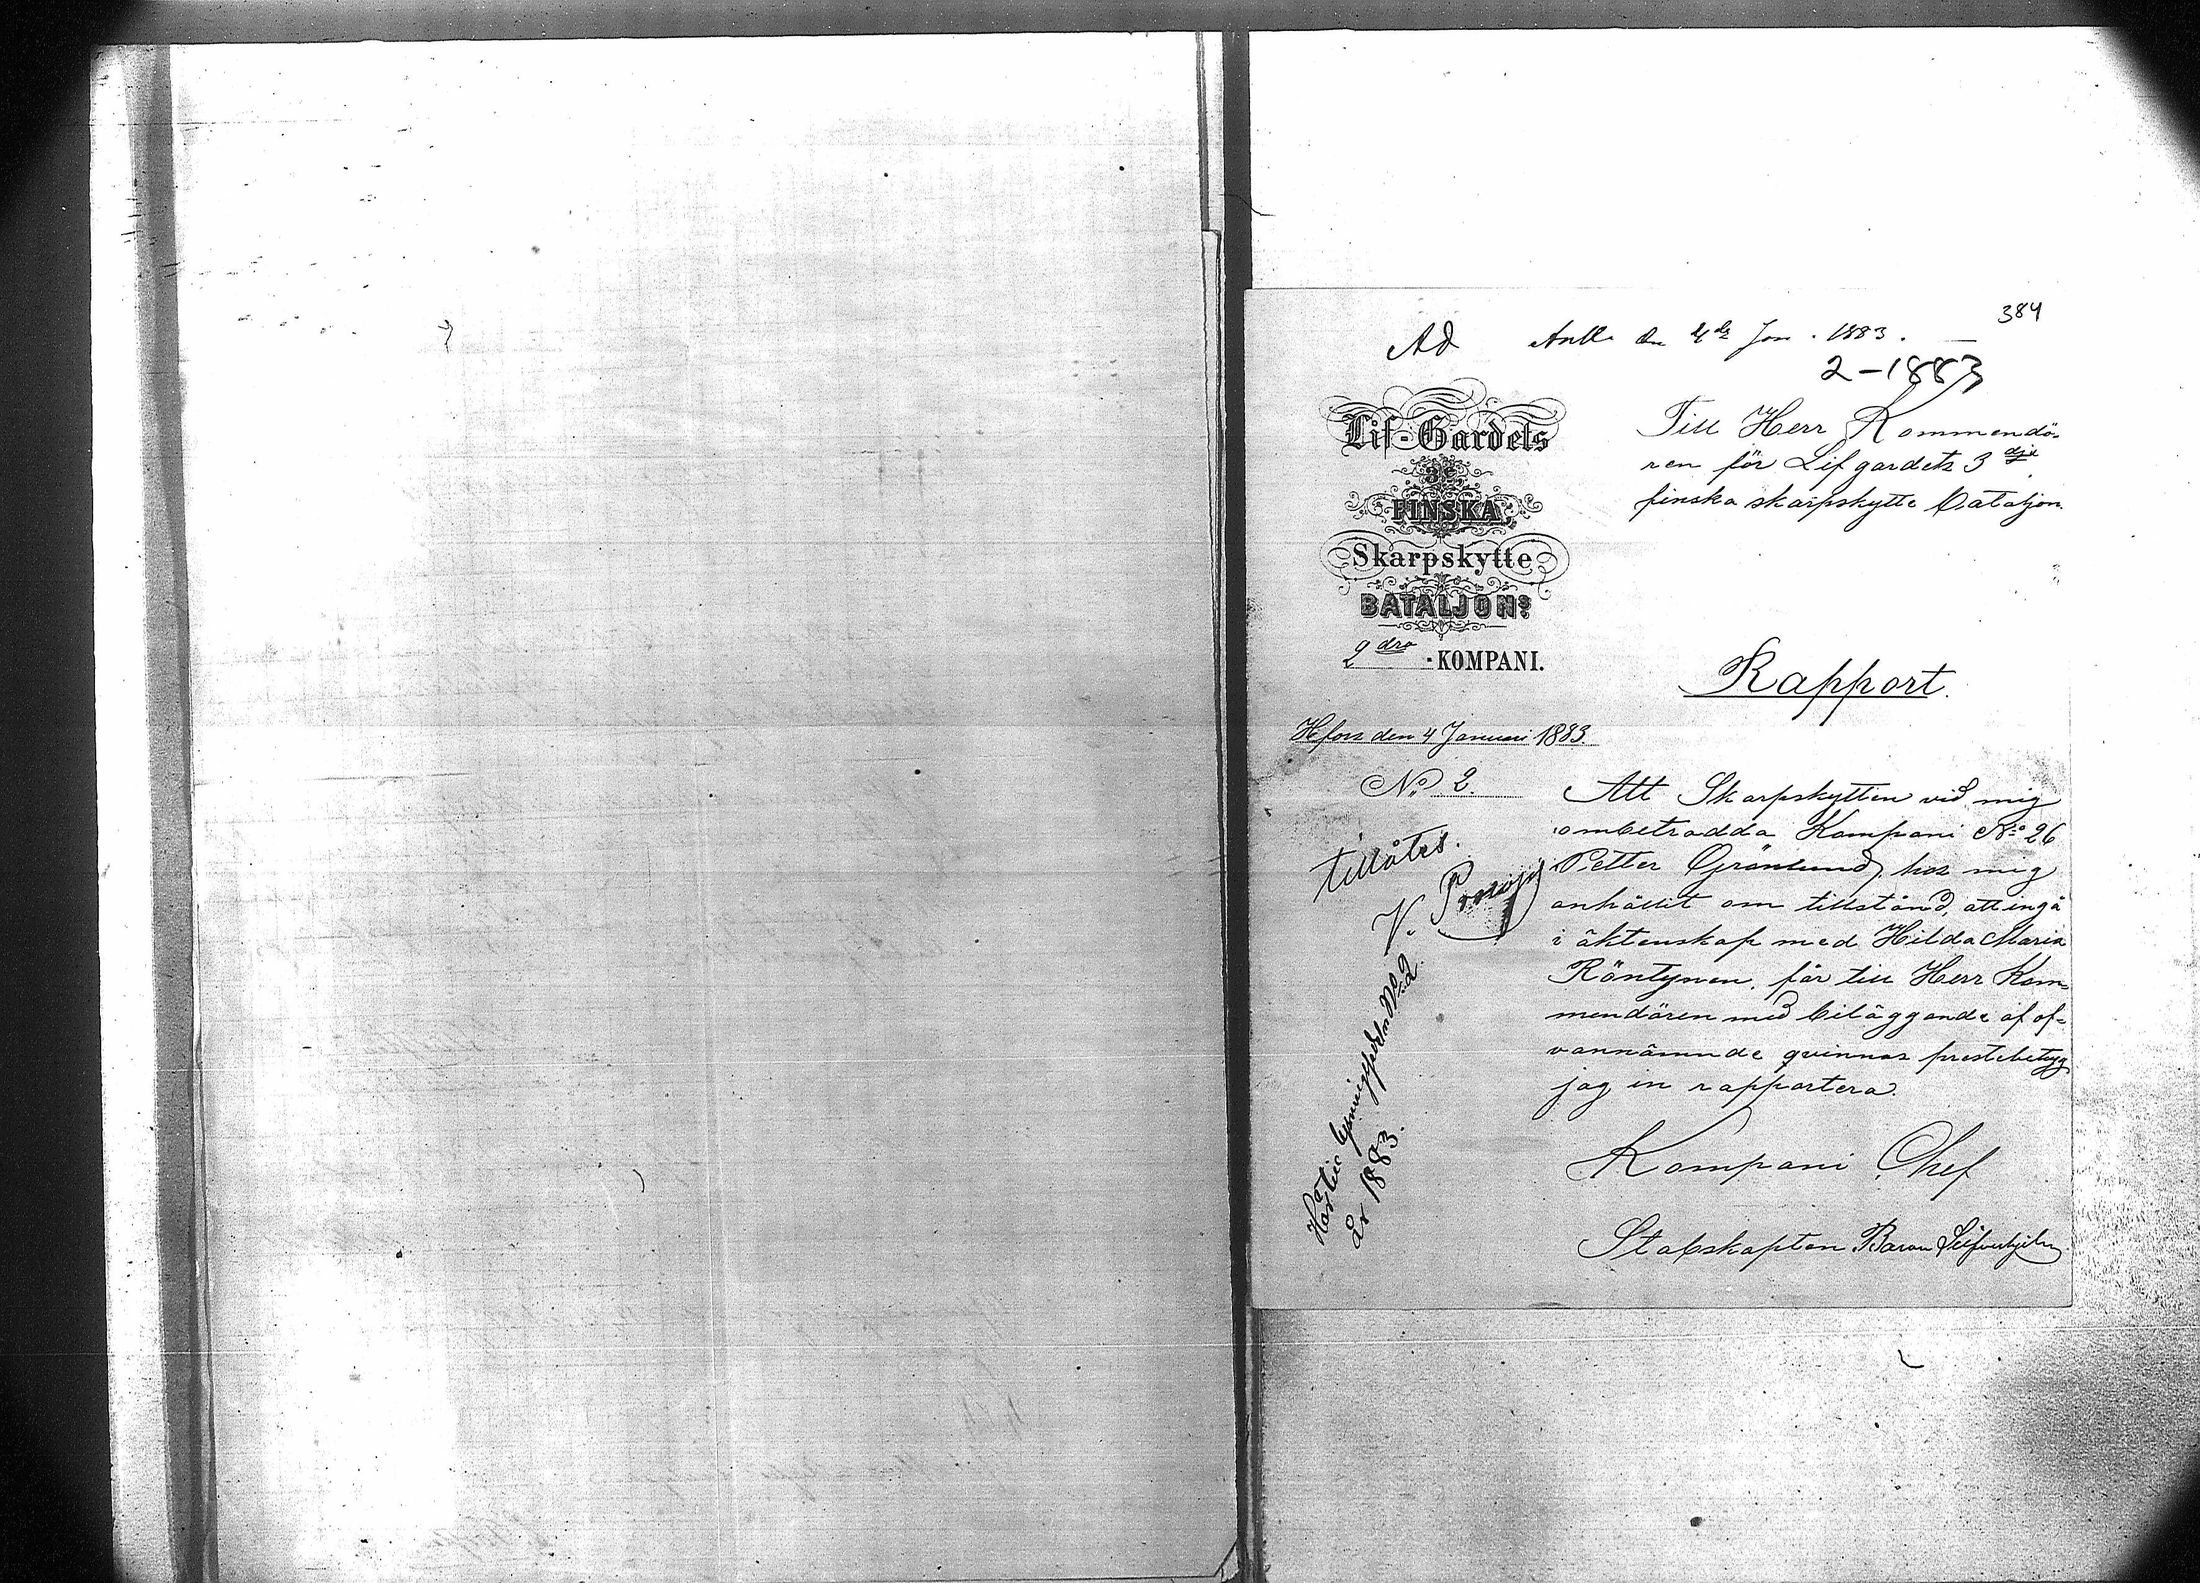 384
Ad Ank. den 4de Jan. 1883.
2-1883
Lif-Gardets
3e
FINSKA
Skarpskytte
BATALJONS
2dra -KOMPANI.
Till Herr Kommendö-
ren för Lifgardets 3dje
finska skarpskytte bataljon.
Rapport.
Hfors den 4 Januari 1883.
No 2.
Att Skarpskytten vid mig
ombetrodda Kompani No 26
Petter Grönlund, hos mig
anhållit om tillstånd, att ingå
i äktenskap med Hilda Maria
Röntynen, får till Herr Kom-
mendören med biläggande af of-
vannämnde qvinnas prestebetyg
jag in rapportera.
Kompani Chef
Stabskapten Baron
tillåtes.
V.
No 2
år 1883.